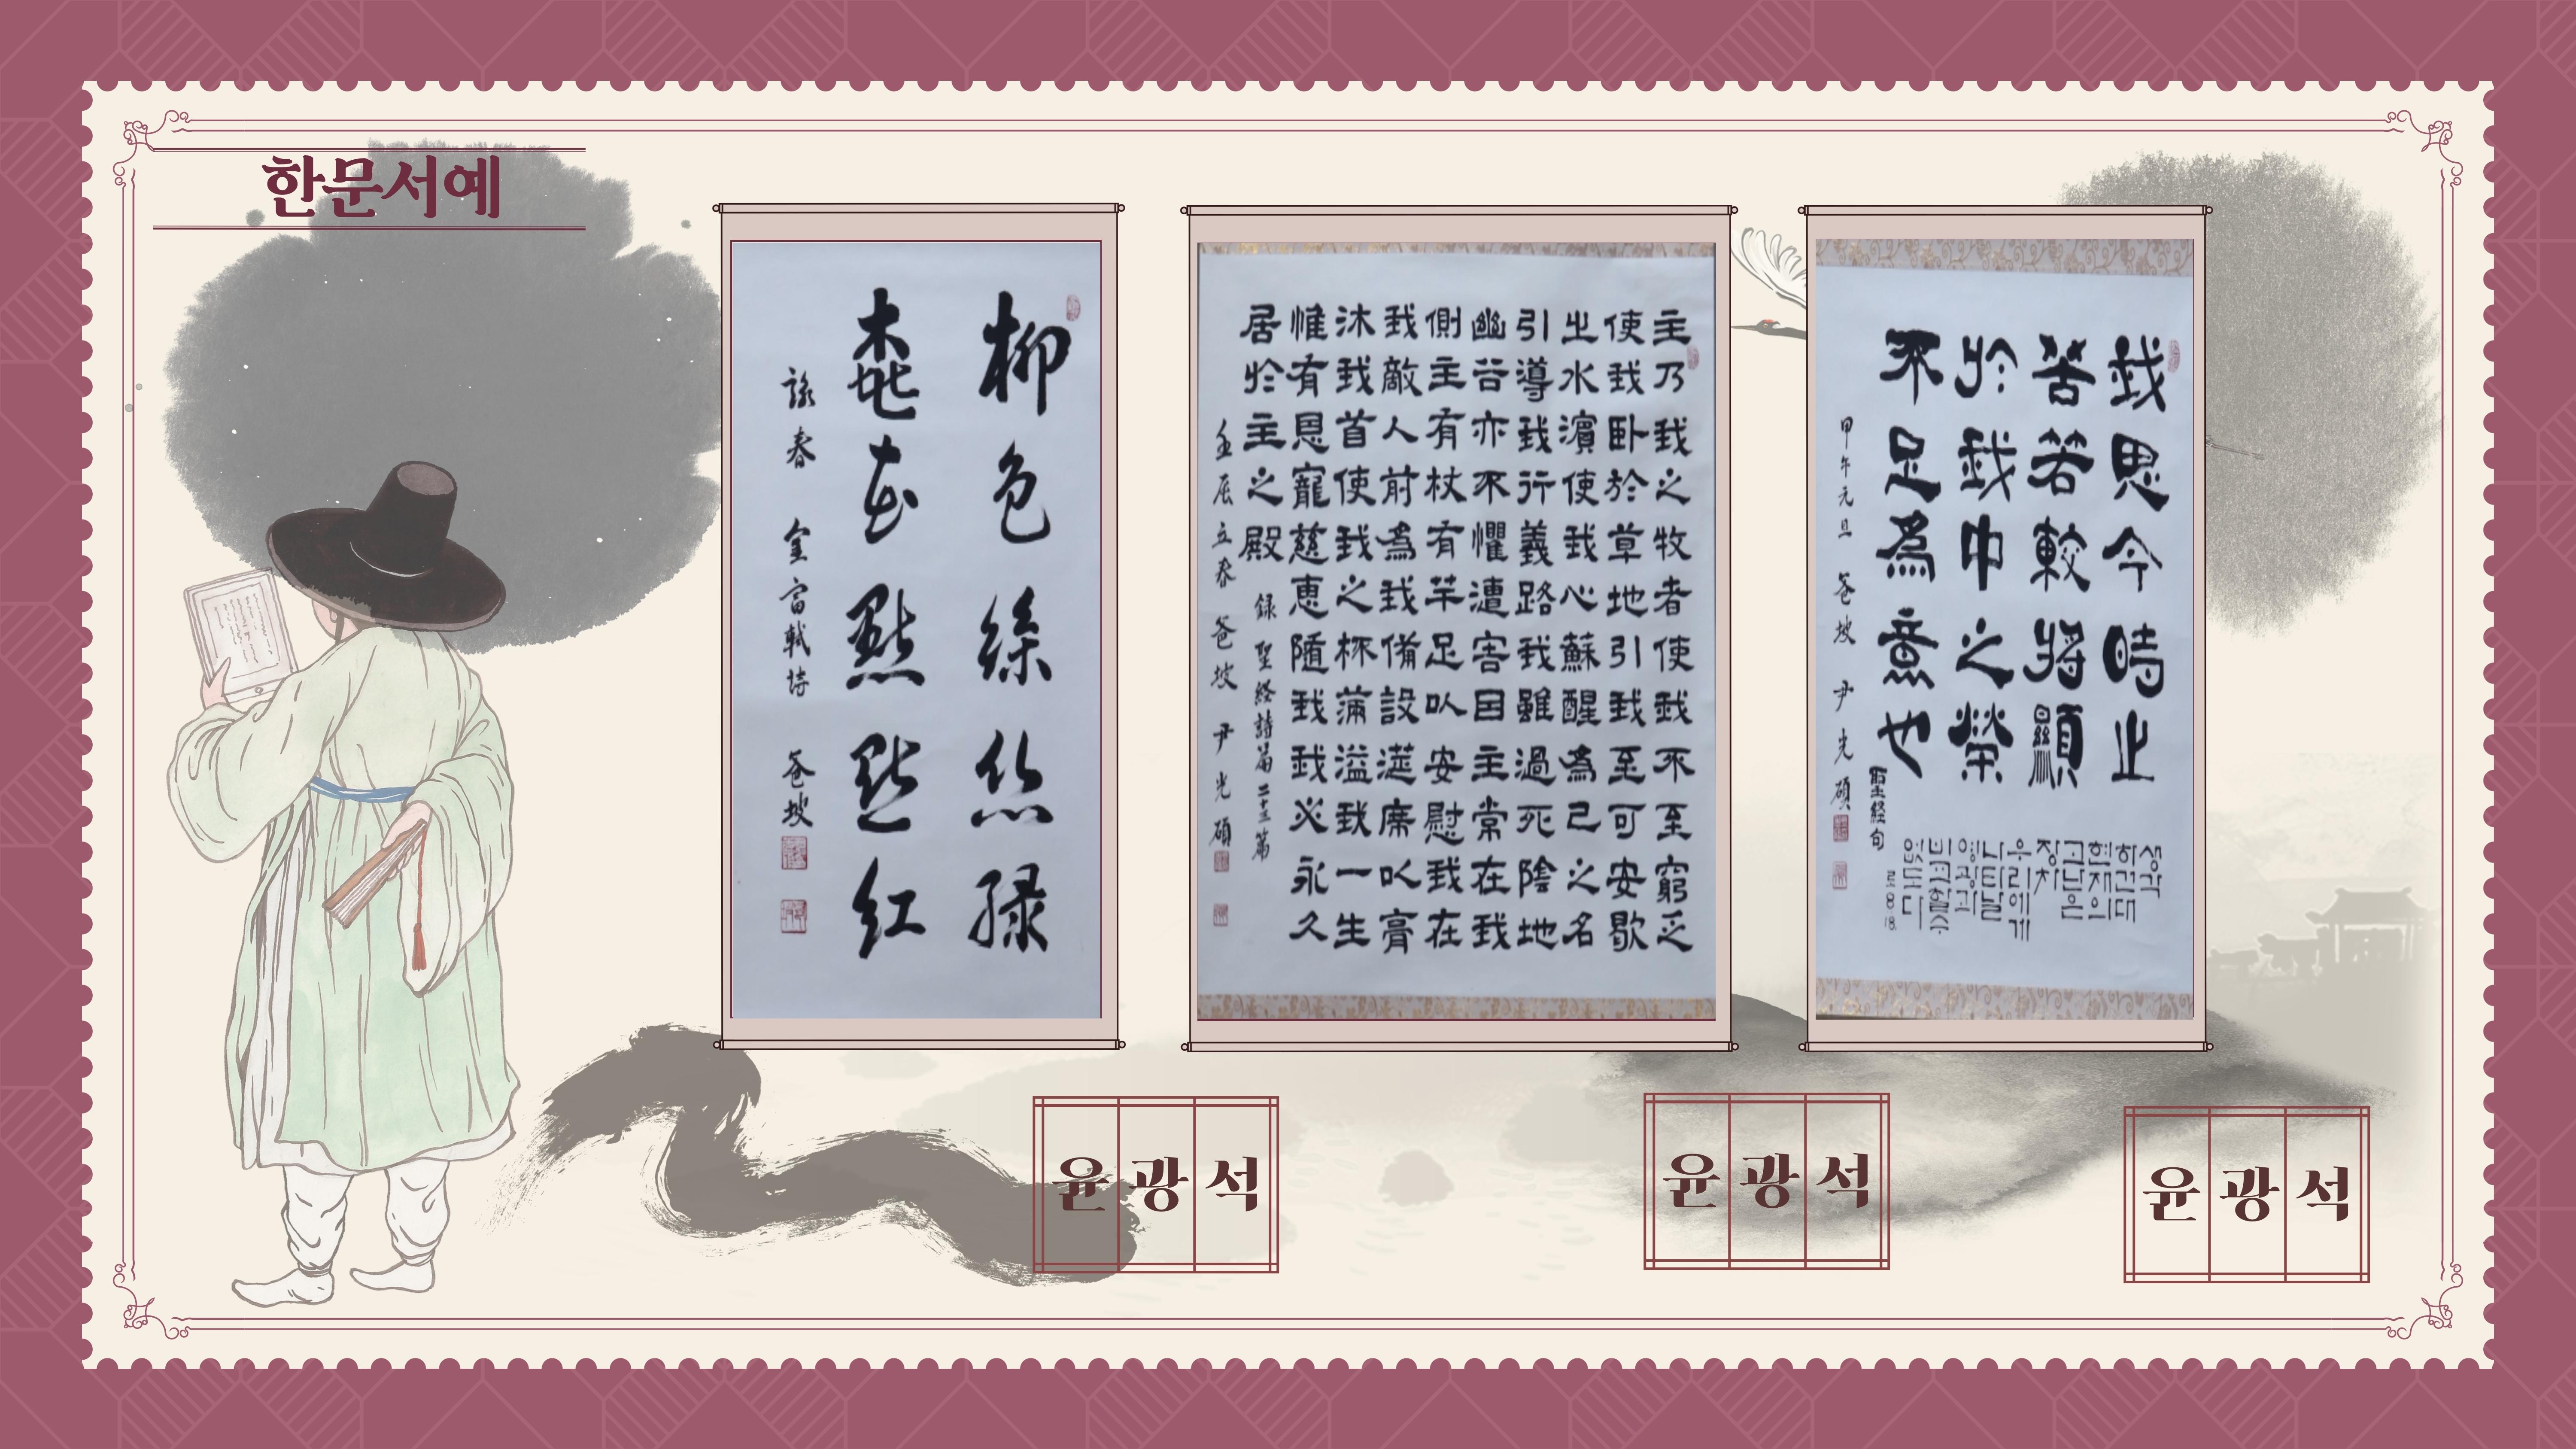 한문서예
柳色絲絲綠
桃花點點紅
詠春 金富軾詩 爸坡
主乃我之牧者使我不至窮乏
使我臥於草地引我至可安歇
之水濱使我心蘇醒為己之名
引導我行義路我雖過死陰地
幽谷亦不懼遭害因主常在我
側主有杖有竿足以安慰我在
我敵人前為我備設筵席以膏
沐我首使我之杯滿溢我一生
惟有恩寵慈惠隨我我必永久
居於主之殿 録聖経詩篇二十三篇
壬辰立春 爸坡 尹光碩
我思今時之
苦若較將顯
於我中之榮
不足為意也 聖経句
생각
하건대
현재의
고난은
장차
우리에게
나타날
영광과
비교할수
없도다
로8:18
甲午元旦 爸坡 尹光碩
윤광석
윤광석
윤광석